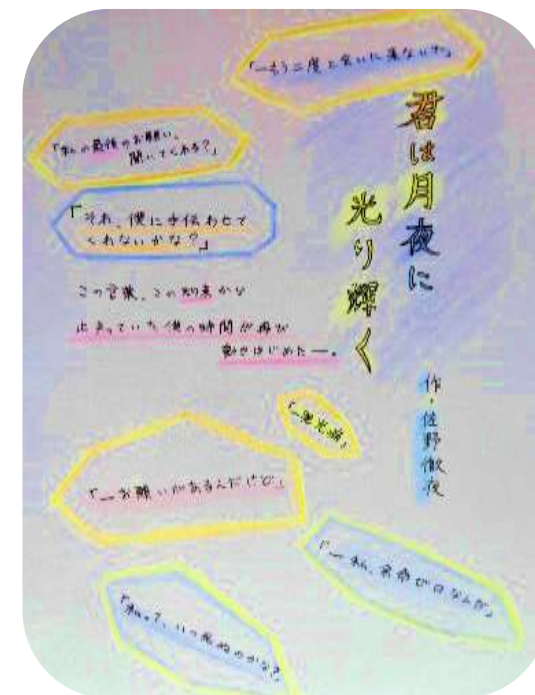 「―もう二度と会いに来ないで」
君は月夜に
光り輝く
作・佐野徹夜
「私の最後のお願い、
聞いてくれる？」
「それ、僕に手伝わせて
くれないかな？」
この言葉、この約束から
止まっていた僕の時間が再び
動きはじめた―。
「―発光病」
「―お願いがあるんだけど」
「―私、余命ゼロなんだ」
「私って、いつ死ぬのかな？」